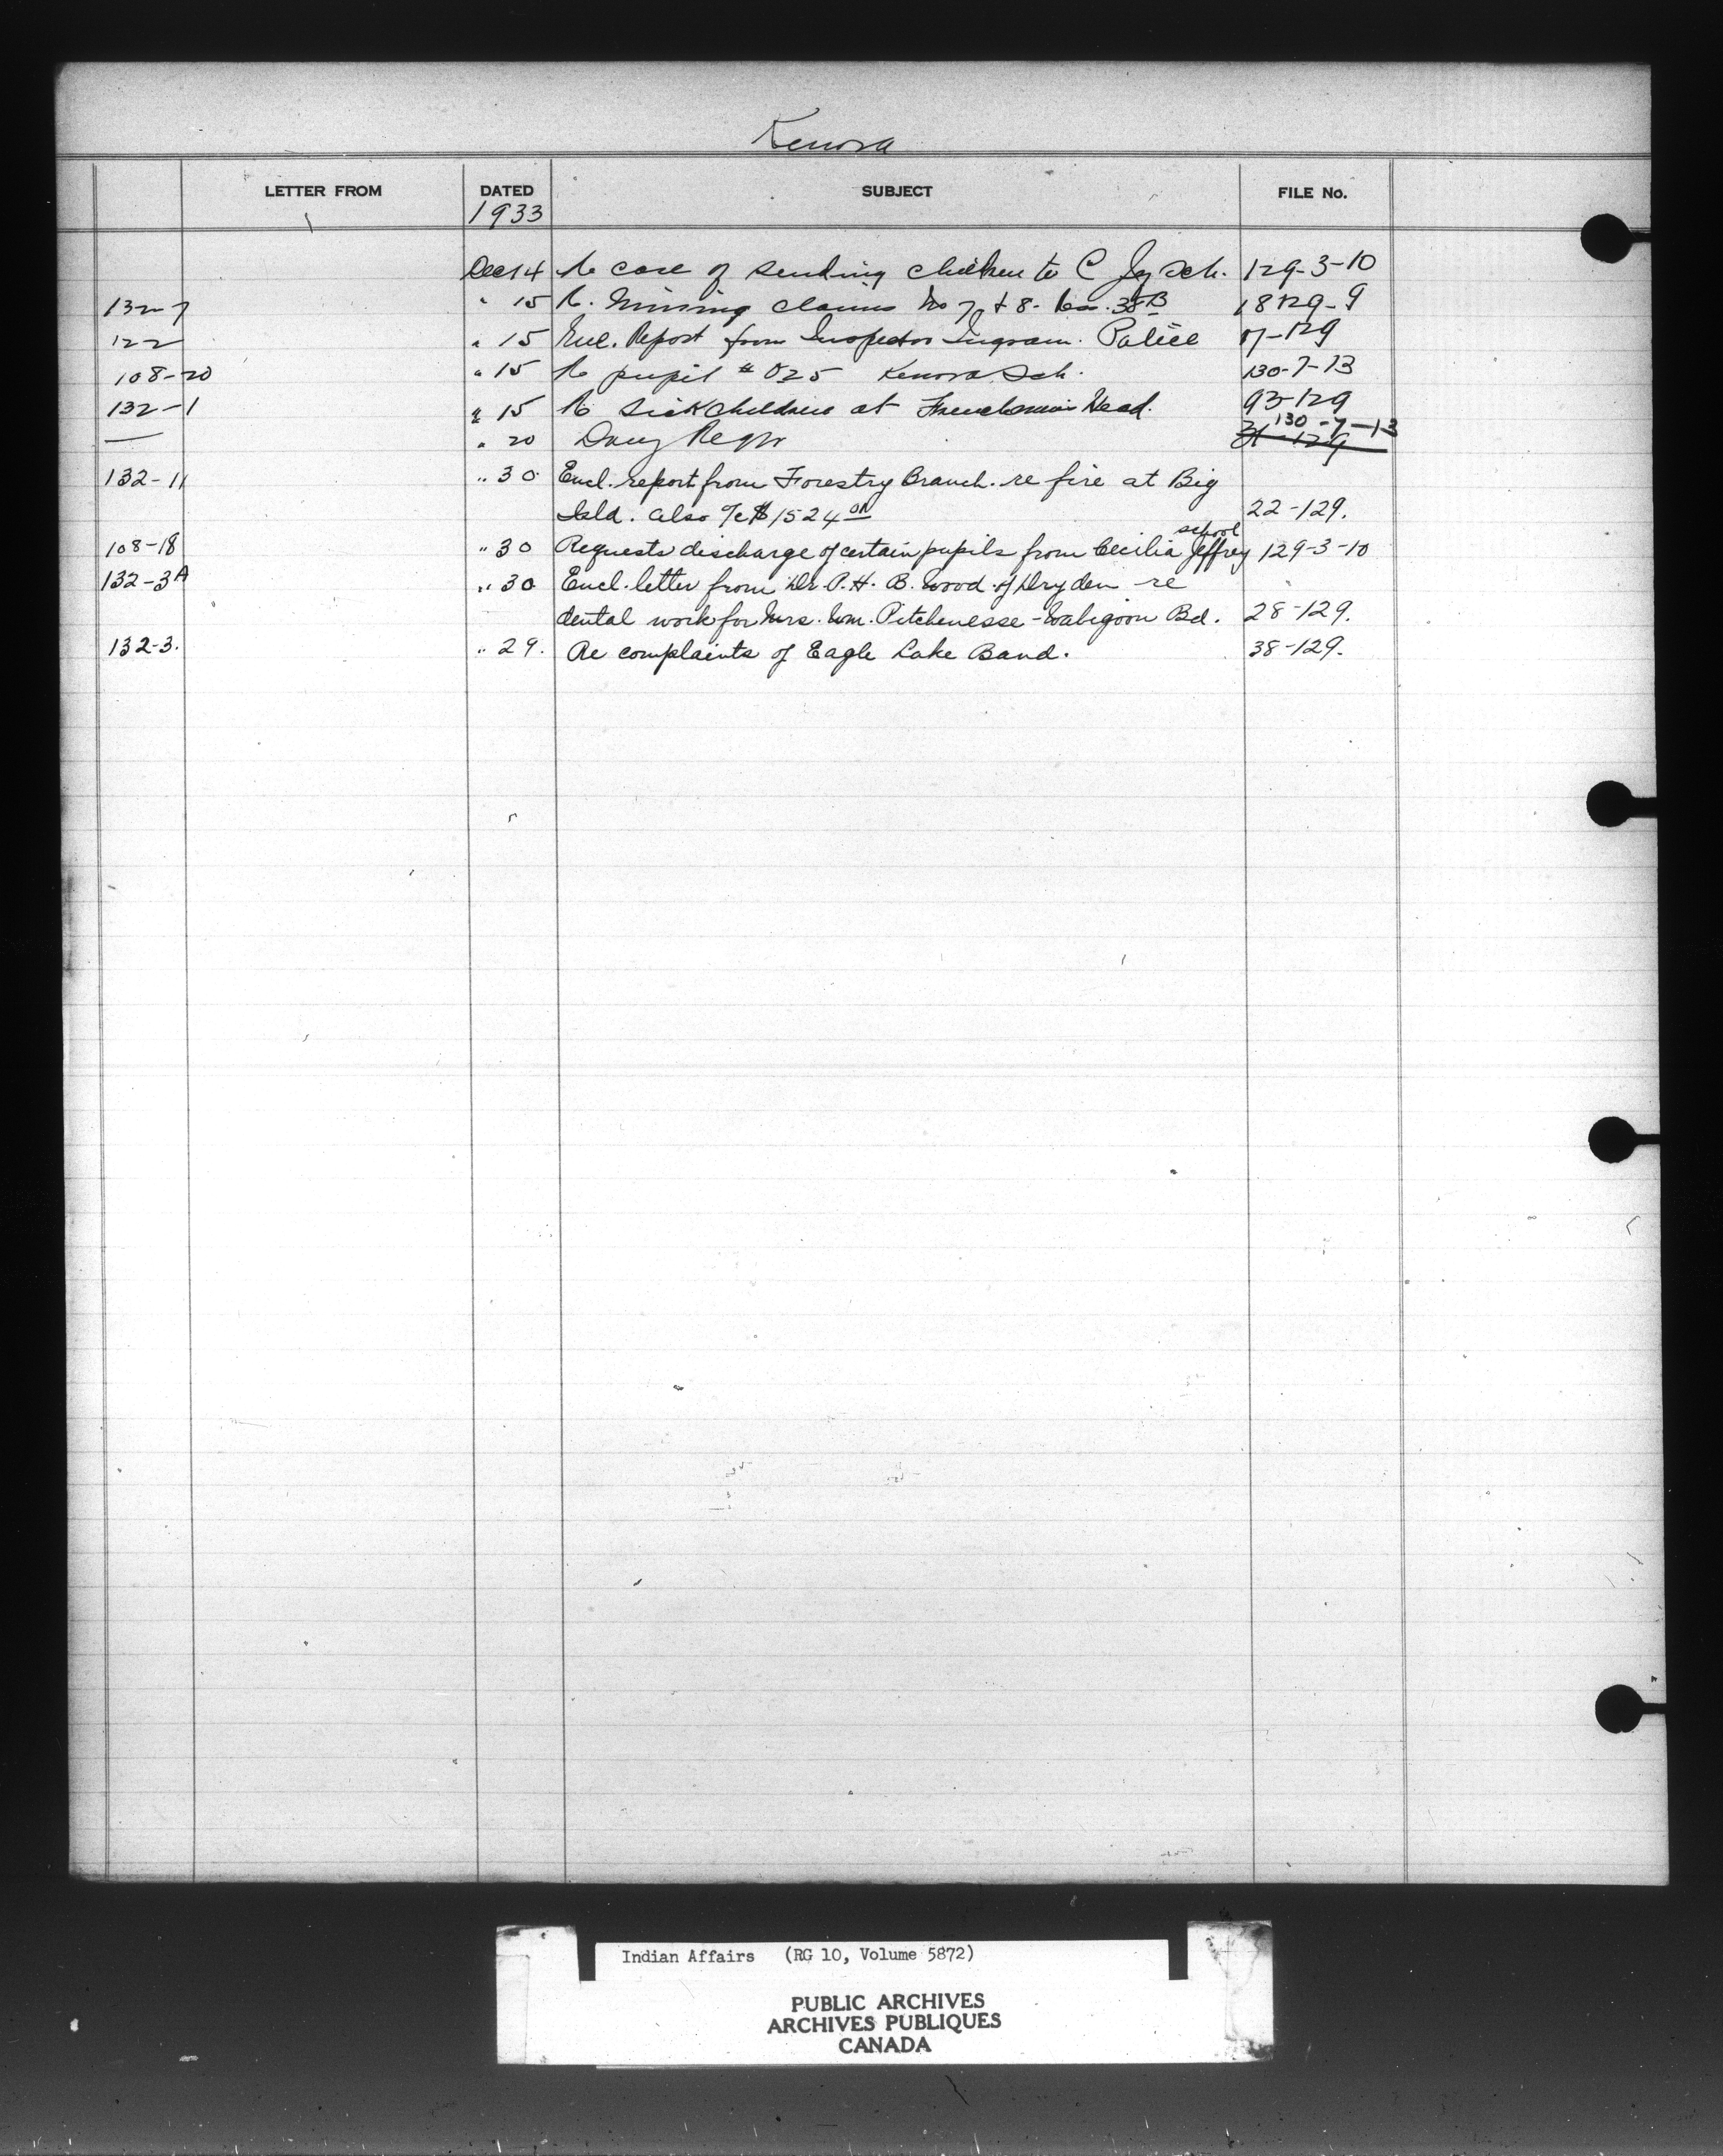 Kenora
LETTER FROM DATED SUBJECT FILE No.
1933
Dec 14 Re case of sending children to C Jy Sch. 129-3-10
132-7 " 15 Re. Mining claims No 7 & 8 - Res. 38B 18129-9
122 " 15 Encl. Report from Inspector Ingram. Police 17-129
108-20 " 15 Re pupil # 025 Kenora Sch. 130-7-13
132-1 " 15 Re Sick Children at Frenchman's Head. 93-129
— " 20 130-7-13
132-11 " 30 Encl. report from Forestry Branch. re fire at Big
Isld. also a/c $1524 22-129.
108-18 " 30 Requests discharge of certain pupils from Cecilia Jeffrey school 129-3-10
132-3A " 30 Encl. letter from Dr. A. H. B. Wood of Dryden - re
dental work for Mrs. Wm. Pitchenesse - Wabigoon Bd. 28-129.
132-3. " 29. Re complaints of Eagle Lake Band. 38-129.
Indian Affairs (RG 10, Volume 5872)
PUBLIC ARCHIVES
ARCHIVES PUBLIQUES
CANADA